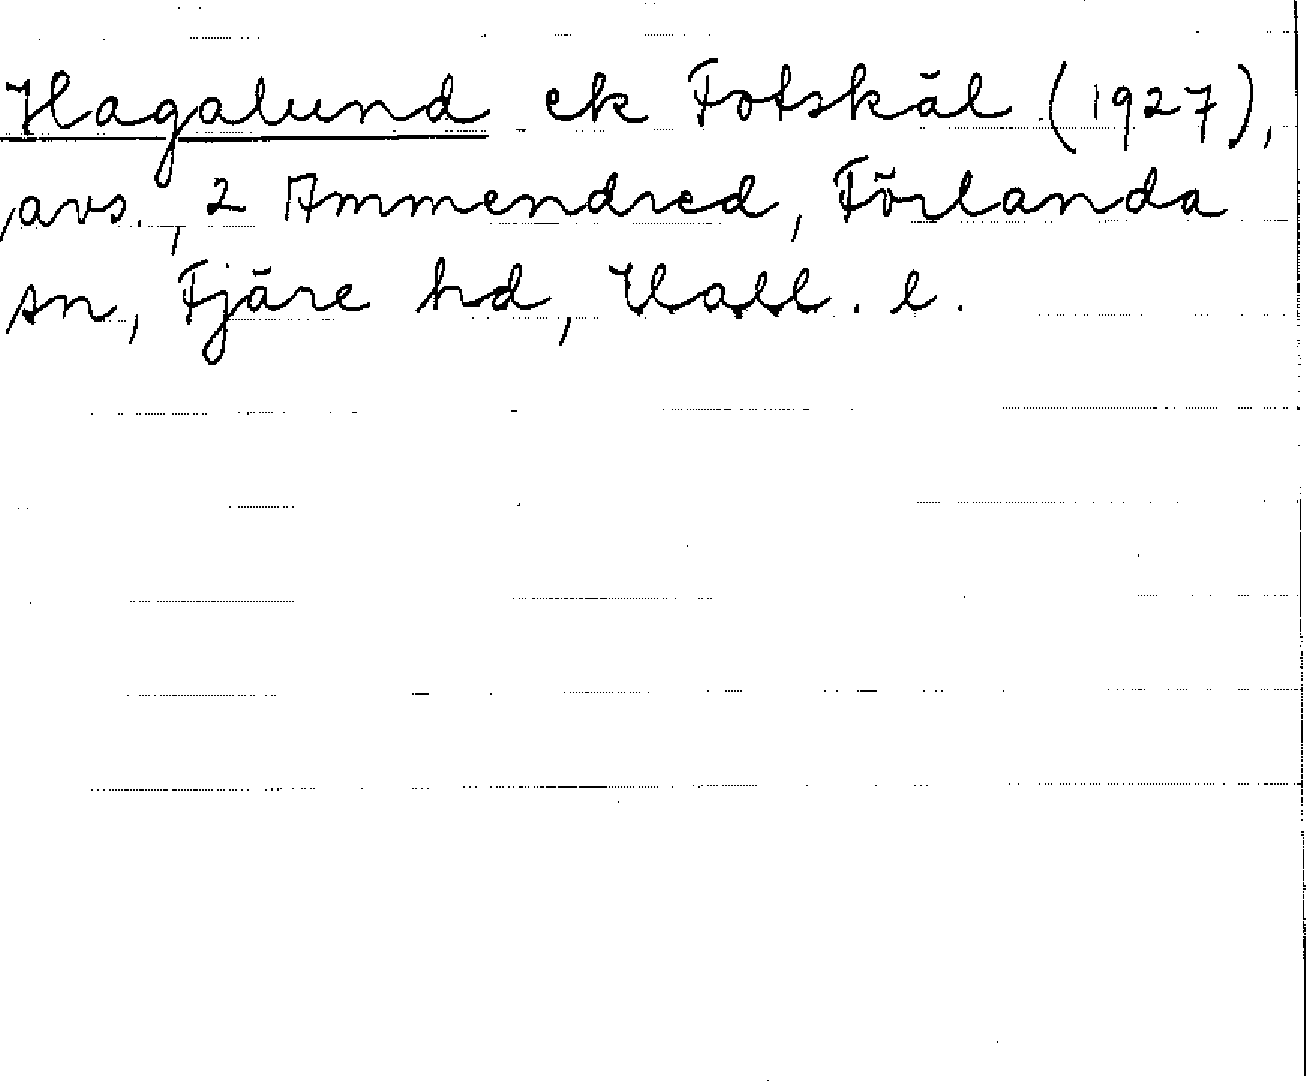 Hagalund ek Fotskäl (1927),
avs., 2 Ammendred, Förlanda
sn, Fjäre hd, Hall. l.